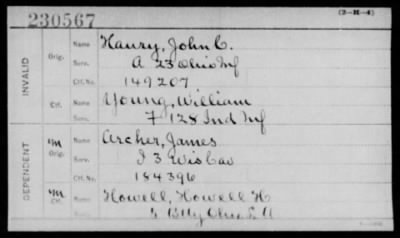 230567
(3-H-4)
INVALID
Orig.
Name Haury, John C.
Serv. A 23 Ohio Inf
Ctf. No. 149207
Ctf.
Name Young, William
Serv. F 128 Ind Inf
DEPENDENT
m Orig.
Name Archer, James
Serv. I 3 Wis Cav
Ctf. No. 184396
m Ctf.
Name Howell, Howell H
Btty Ohio L A